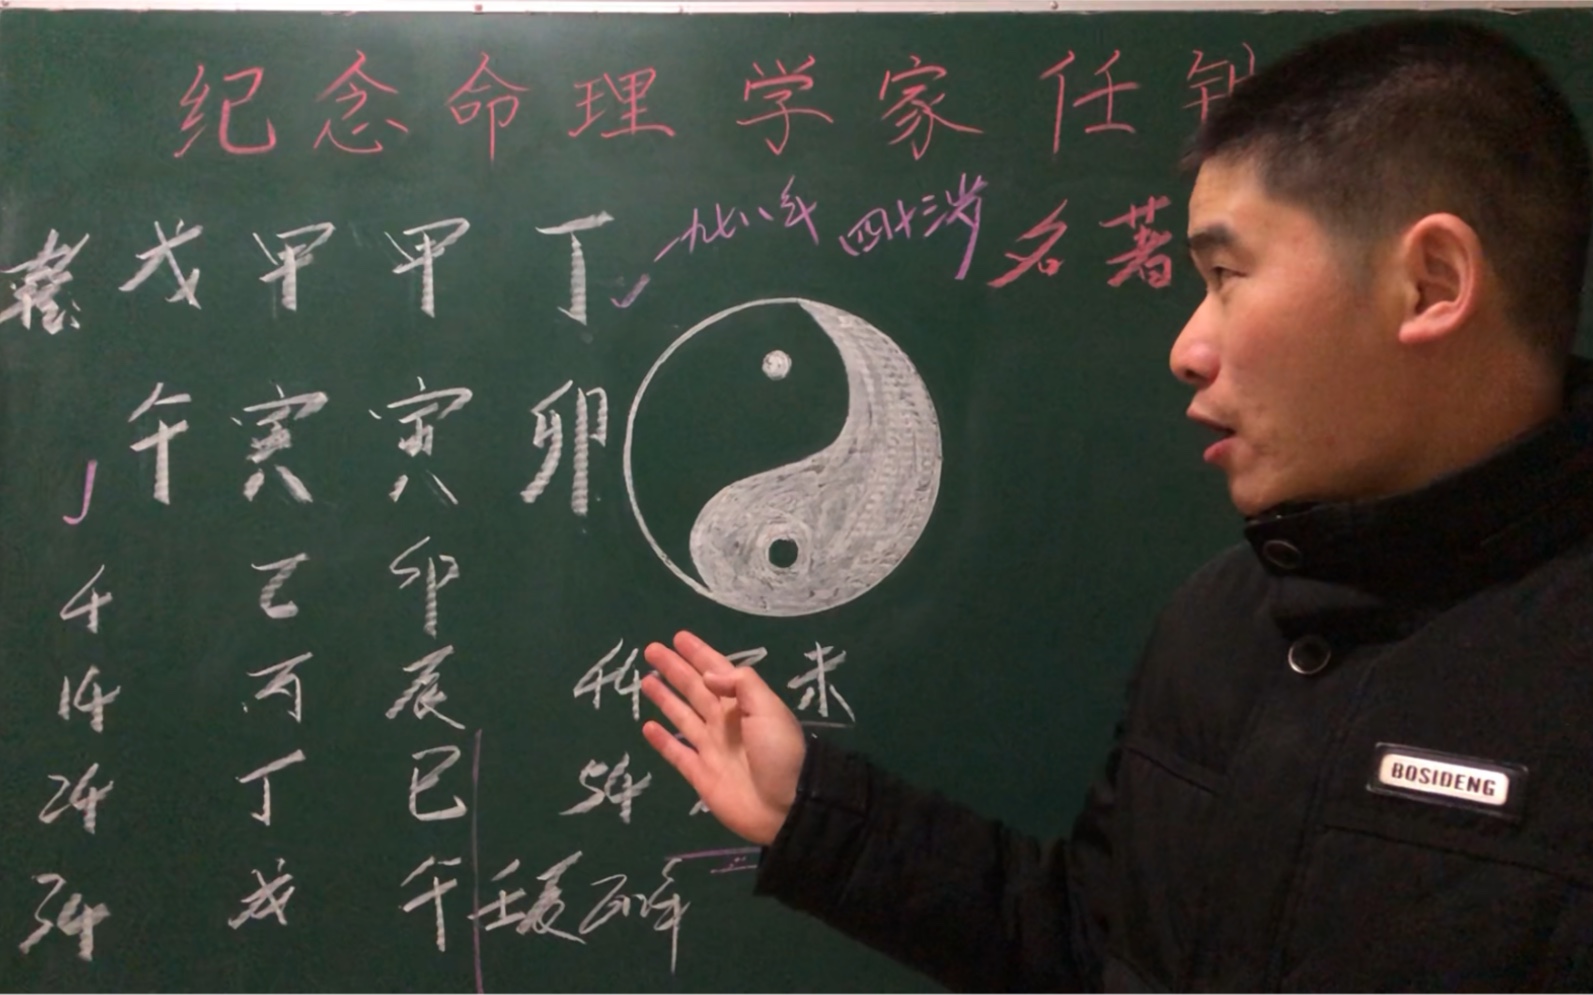 纪念命理学家任
一九七八年 四十三岁 名著
戊 甲 甲 丁
午 寅 寅 卯
4 乙 卯
14 丙 辰 44 未
24 丁 巳 54
34 戊 午
BOSIDENG